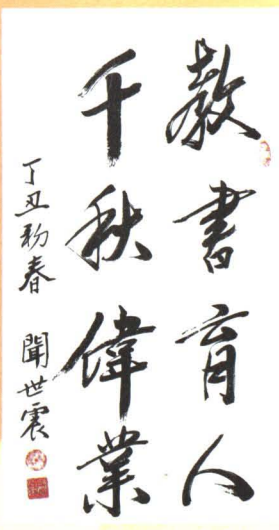 教書育人
千秋偉業
丁丑初春 聞世震